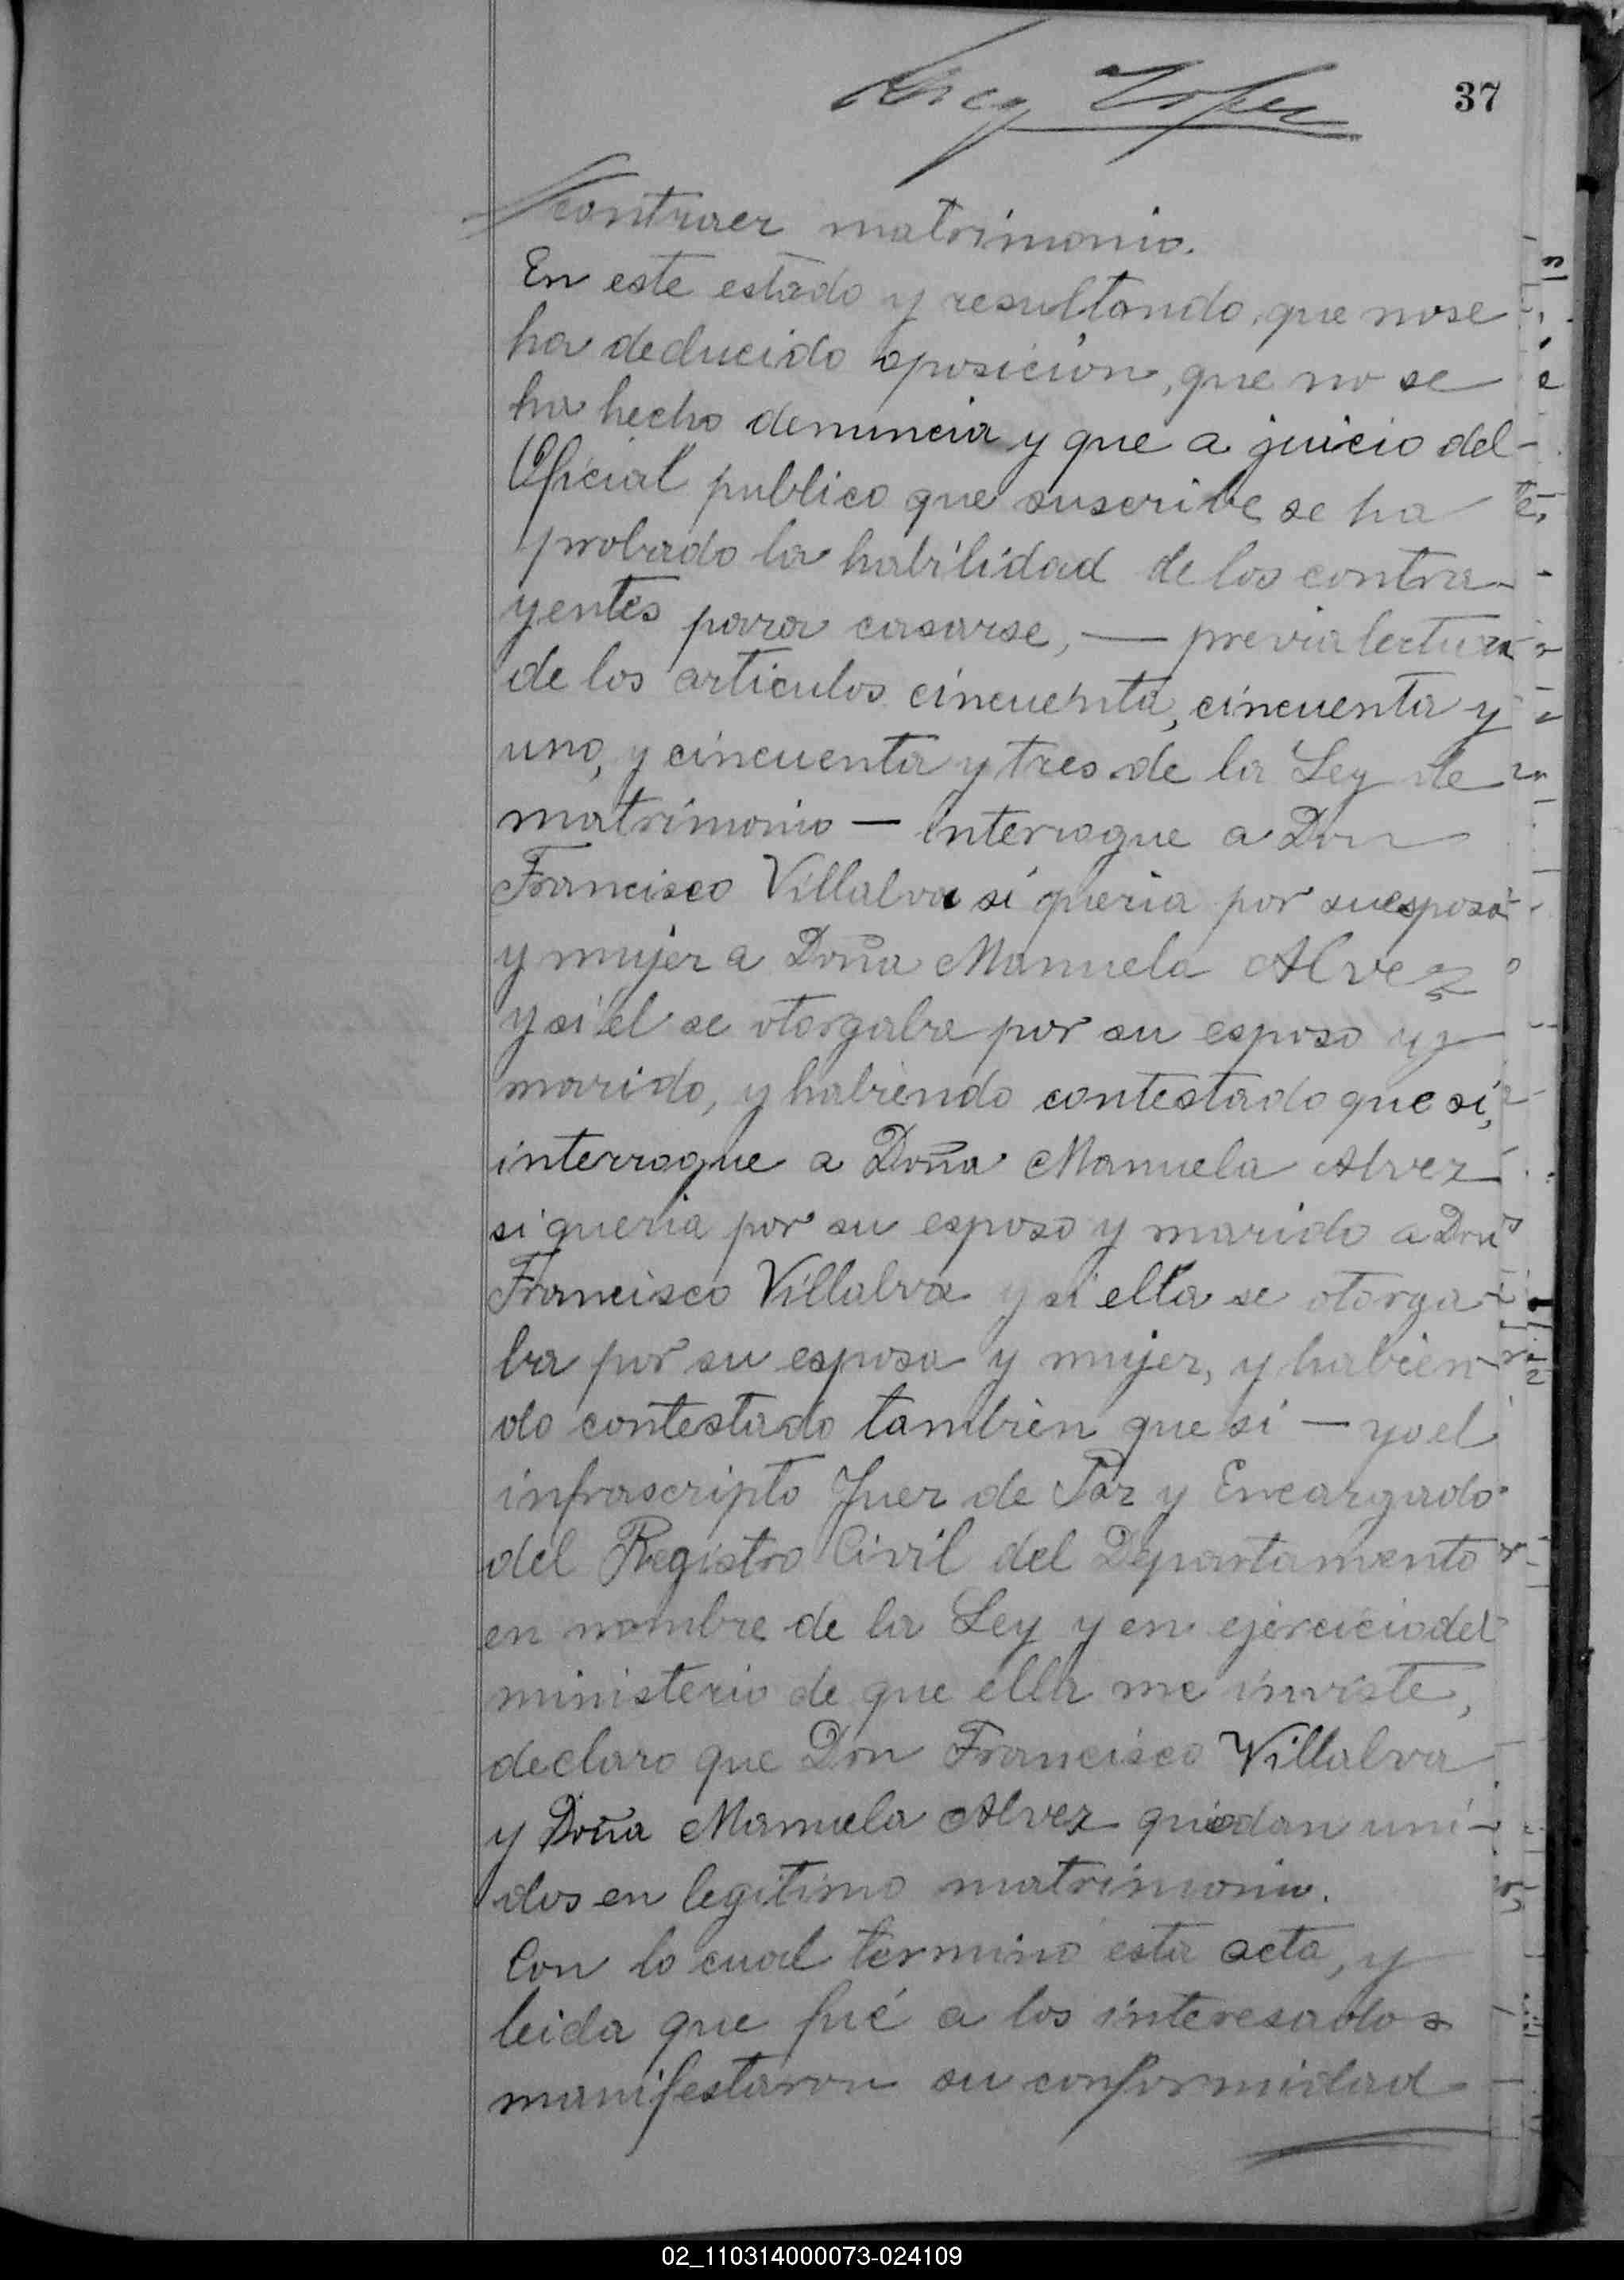 37
contraer matrimonio.
En este estado y resultando, que nose
ha deducido oposicion, que no se
ha hecho denuncia y que a juicio del
Oficial publico que suscribe se ha
probado la habilidad de los contra-
yentes para casarse, — previa lectura
de los articulos cincuenta, cincuenta y
uno, y cincuenta y tres de la Ley de
matrimonio — interrogue a Don
Francisco Villalva si queria por su esposa
y mujer a Doña Manuela Alvez
y si el se otorgaba por su esposo y
marido, y habiendo contestado que si,
interrogue a Doña Manuela Alvez
si queria por su esposo y marido a Don
Francisco Villalva y si ella se otorga-
ba por su esposa y mujer, y habien-
do contestado tambien que si — yo el
infrascripto Juez de Paz y Encargado
del Registro Civil del Departamento
en nombre de la Ley y en ejercicio del
ministerio de que ella me inviste,
declaro que Don Francisco Villalva
y Doña Manuela Alvez quedan uni-
dos en legitimo matrimonio.
Con lo cual terminó esta acta, y
leida que fué a los interesados
manifestaron su conformidad
02_110314000073-024109